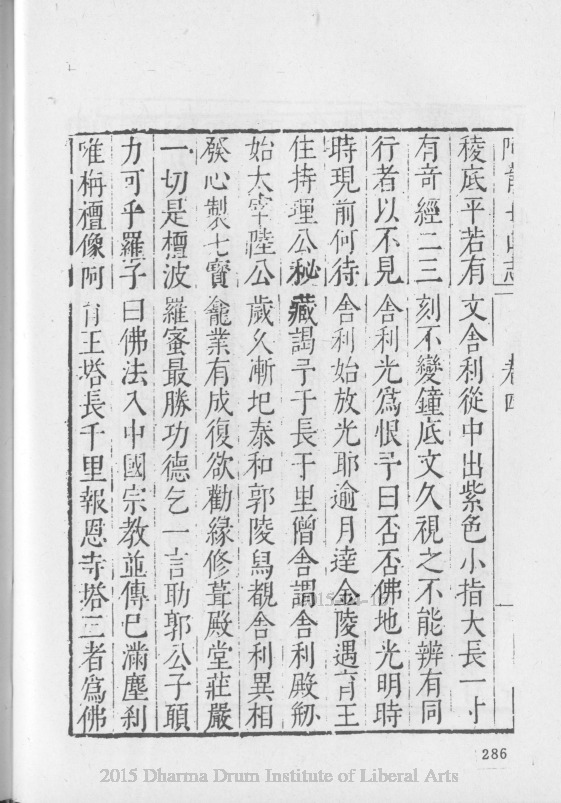 阿育王山志　卷四
稜底平若有文舍利從中出紫色小指大長一寸
有奇經二三刻不變鐘底文久視之不能辨有同
行者以不見舍利光爲恨予曰否否佛地光明時
時現前何待舍利始放光耶逾月達金陵遇育王
住持理公秘藏謁予于長干里僧舍謂舍利殿刱
始太宰陸公歲久漸圮泰和郭陵舄覩舍利異相
發心製七寶龕業有成復欲勸緣修葺殿堂莊嚴
一切是檀波羅蜜最勝功德乞一言助郭公子願
力可乎羅子曰佛法入中國宗教並傳已滿塵刹
唯栴檀像阿育王塔長千里報恩寺塔三者爲佛
286
2015 Dharma Drum Institute of Liberal Arts